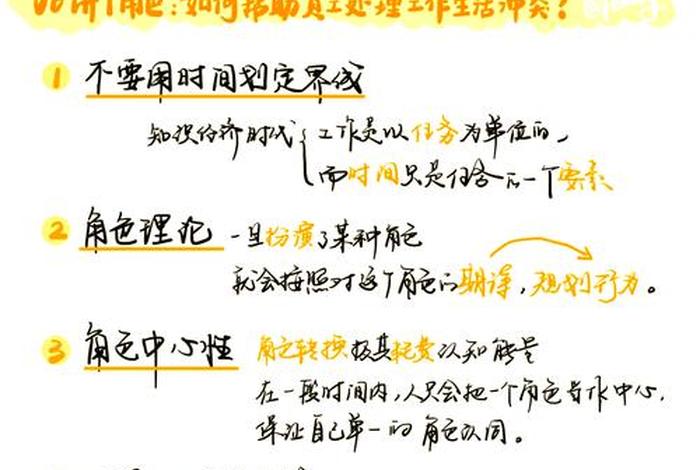 如何帮助员工处理工作生活冲突？
1 不要用时间划定界线
知识经济时代 工作是以任务为单位的，
而时间只是任务的一个要素
2 角色理论 一旦扮演了某种角色
就会按照对这个角色的期待，规划行为。
3 角色中心性 角色转换极其耗费认知能量
在一段时间内，人只会把一个角色当作中心，
保证自己单一的角色认同。